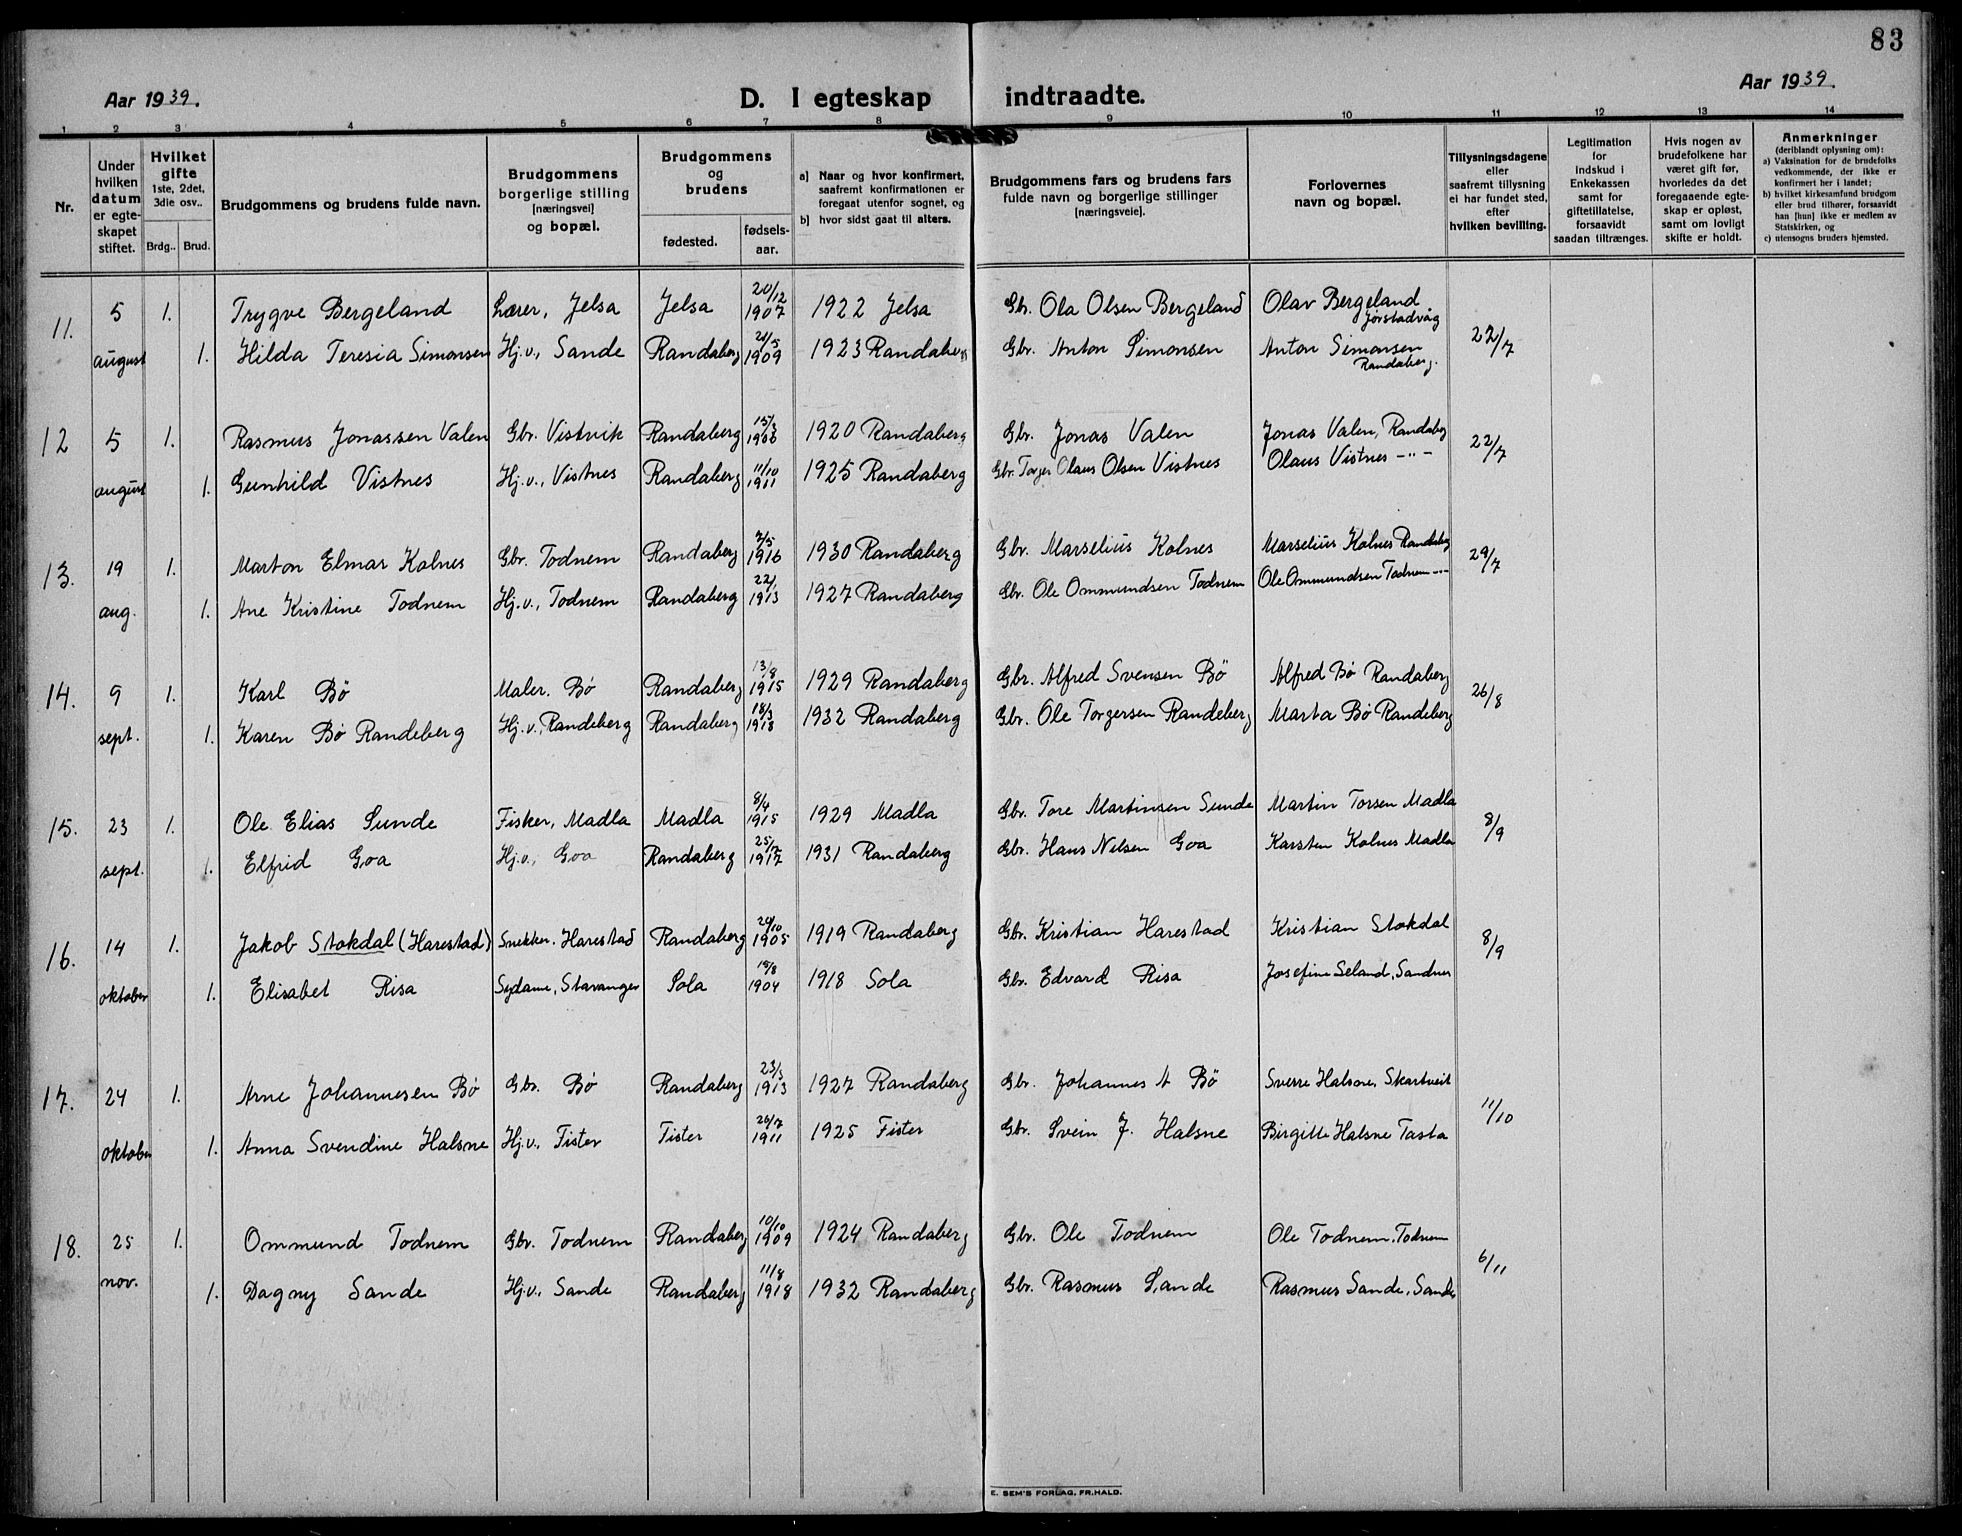 83
Aar 1939.
D. I egteskap indtraadte.
Aar 1939.
1 2 3 4 5 6 7 8 9 10 11 12 13 14
Nr.
Under hvilken datum er egte-skapet stiftet.
Hvilket gifte 1ste, 2det, 3die osv..
Brdg.. Brud.
Brudgommens og brudens fulde navn.
Brudgommens borgerlige stilling [næringsvei] og bopæl.
Brudgommens og brudens
fødested. fødsels-aar.
a) Naar og hvor konfirmert, saafremt konfirmationen er foregaat utenfor sognet, og
b) hvor sidst gaat til alters.
Brudgommens fars og brudens fars fulde navn og borgerlige stillinger [næringsveie].
Forlovernes navn og bopæl.
Tillysningsdagene eller saafremt tillysning ei har fundet sted, efter hvilken bevilling.
Legitimation for indskud i Enkekassen samt for giftetillatelse, forsaavidt saadan tiltrænges.
Hvis nogen av brudefolkene har været gift før, hvorledes da det foregaaende egte-skap er opløst, samt om lovligt skifte er holdt.
Anmerkninger (deriblandt oplysning om):
a) Vaksination for de brudefolks vedkommende, der ikke er konfirmert her i landet;
b) hvilket kirkesamfund brudgom eller brud tilhører, forsaavidt han [hun] ikke er medlem av Statskirken, og
c) utensogns bruders hjemsted.
11. 5 1. Trygve Bergeland Lærer, Jelsa Jelsa 20/12 1907 1922 Jelsa Gbr. Ola Olsen Bergeland Olav Bergeland Jørstadvåg 22/7
august 1. Hilda Teresia Simonsen Hj.v., Sande Randaberg 1909 1923 Randaberg Gbr. Anton Simonsen Anton Simonsen Randaberg.
12 5 1. Rasmus Jonassen Valen Gbr. Vistvik Randaberg 1906 1920 Randaberg Gbr. Jonas Valen Jonas Valen, Randaberg 22/7
august 1. Gunhild Vistnes Hj.v., Vistnes Randaberg 11/10 1911 1925 Randaberg Gbr. Torger Olaus Olsen Vistnes Olaus Vistnes -"-
13. 19 1. Marton Elmar Kolnes Gbr. Todnem Randaberg 1916 1930 Randaberg Gbr. Marselius Kolnes Marselius Kolnes Randaberg 29/7
aug. 1. Ane Kristine Todnem Hj.v., Todnem Randaberg 1913 1927 Randaberg Gbr. Ole Ommundsen Todnem Ole Ommundsen Todnem -"-
14. 9 1. Karl Bø Maler. Bø Randaberg 13/8 1915 1929 Randaberg Gbr. Alfred Svensen Bö Alfred Bø Randaberg 26/8
sept. 1. Karen Bø Randeberg Hj.v., Randeberg Randaberg 18/3 1918 1932 Randaberg Gbr. Ole Torgersen Randeberg Marta Bø Randeberg
15. 23 1. Ole Elias Sunde Fisker, Madla Madla 8/4 1915 1929 Madla Gbr. Tore Martinsen Sunde Martin Torsen Madla 8/9
sept. 1. Elfrid Goa Hj.v., Goa Randaberg 1917 1931 Randaberg Gbr. Hans Nelsen Goa Karsten Kolnes Madla
16. 14 1. Jakob Stokdal (Harestad) Snekker. Harestad Randaberg 1905 1919 Randaberg Gbr. Kristian Harestad Kristian Stokdal 8/9
oktober 1. Elisabet Risa Sydame, Stavanger Sola 1904 1918 Sola Gbr. Edvard Risa Josefine Seland, Sandnes
17. 24 1. Arne Johannesen Bø Gbr. Bø Randaberg 23/3 1913 1927 Randaberg Gbr. Johannes A Bö Sverre Halsne, Skartveit 11/10
oktober 1. Anna Svendine Halsne Hj.v., Fister Fister 26/7 1911 1925 Fister Gbr. Svein J. Halsne Birgitte Halsne Tasta
18. 25 1. Ommund Todnem Gbr. Todnem Randaberg 10/10 1909 1924 Randaberg Gbr. Ole Todnem Ole Todnem. Todnem 6/11
nov. 1. Dagny Sande Hj.v., Sande Randaberg 11/8 1918 1932 Randaberg Gbr. Rasmus Sande Rasmus Sande, Sande
E. SEM'S FORLAG, FR.HALD.